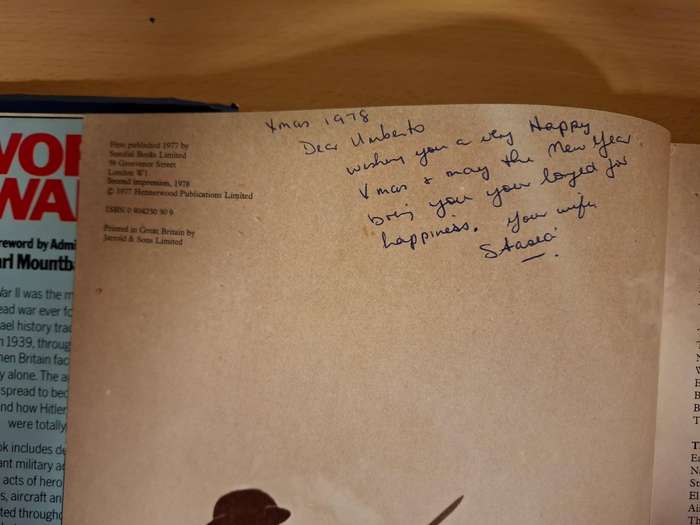 Xmas 1978
Dear Umberto
wishing you a very Happy
Xmas & may the New Year
bring you your longed for
happiness. Your wife,
Stasea
First published 1977 by
Sundial Books Limited
59 Grosvenor Street
London W1
Second impression, 1978
© 1977 Hennerwood Publications Limited
ISBN 0 904230 50 9
Printed in Great Britain by
Jarrold & Sons Limited
WOR
WAR
reword by Admi
arl Mountb
War II was the m
ead war ever fo
ael history trac
n 1939, throug
hen Britain fac
y alone. The a
spread to bec
nd how Hitler
were totally
ok includes de
ant military ac
acts of hero
s, aircraft an
ted througho